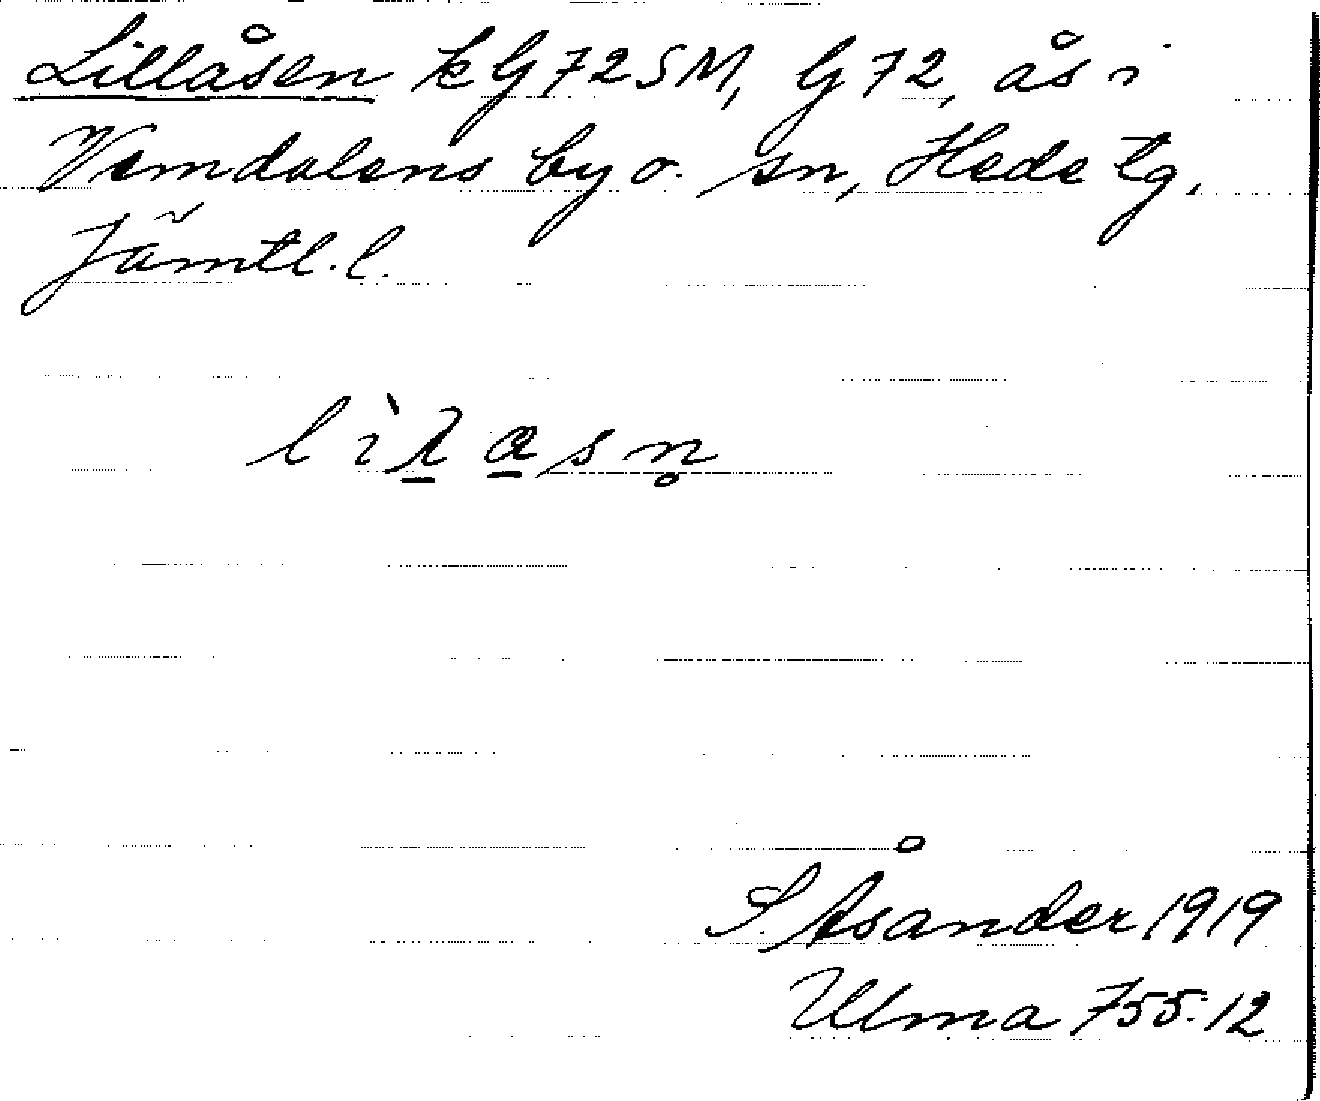 Lillåsen kG72SM, G72, ås i
Vemdalens by o. sn, Hede tg,
Jämtl. l.
lìl̠a̠sn̥
S. Åsander 1919
Ulma 755:12